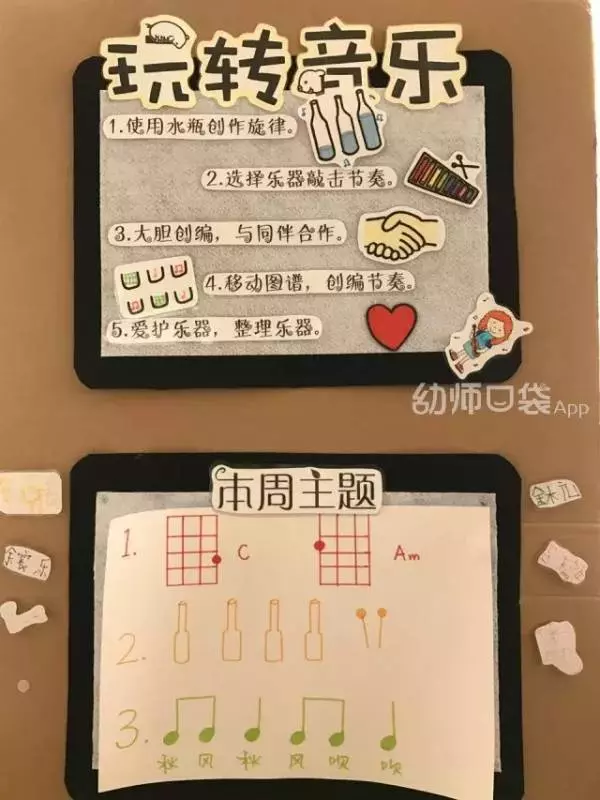 玩转音乐
1.使用水瓶创作旋律。
2.选择乐器敲击节奏。
3.大胆创编，与同伴合作。
4.移动图谱，创编节奏。
5.爱护乐器，整理乐器。
幼师口袋App
本周主题
1. C Am
2.
3.
秋 风 秋 风 吹 吹